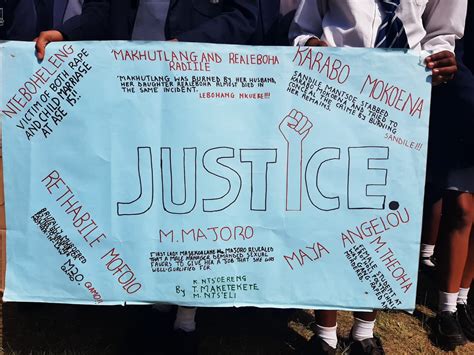 MAKHUTLANG AND REALEBOHA
RADILLE
"MAKHUTLANG WAS BURNED BY HER HUSBAND,
HER DAUGHTER REALEBOHA ALMOST DIED IN
THE SAME INCIDENT.
LEBOHANG
NTEBOHELENG
VICTIM OF BOTH RAPE
AND CHILD MARRIAGE
AT AGE 15!!
KARABO MOKOENA
SANDILE MANTSOE STABBED
KARABO MOKOENA AND TRIED TO
CONCEAL THE CRIME BY BURNING
HER REMAINS.
SANDILE!!!
JUSTICE.
RETHABILE MOFOLO
BRUTALLY MURDERED
M. MAJORO
FIRST LADY MAJORO REVEALED
THAT A MALE MANAGER DEMANDED SEXUAL
FAVORS TO GIVE HER A JOB THAT SHE WAS
WELL-QUALIFIED FOR
MAYA ANGELOU
MTHEOHA
FEMALE STUDENT AT
By
K. NTS'OERENG
T. MAKETEKETE
M. NTS'ELI